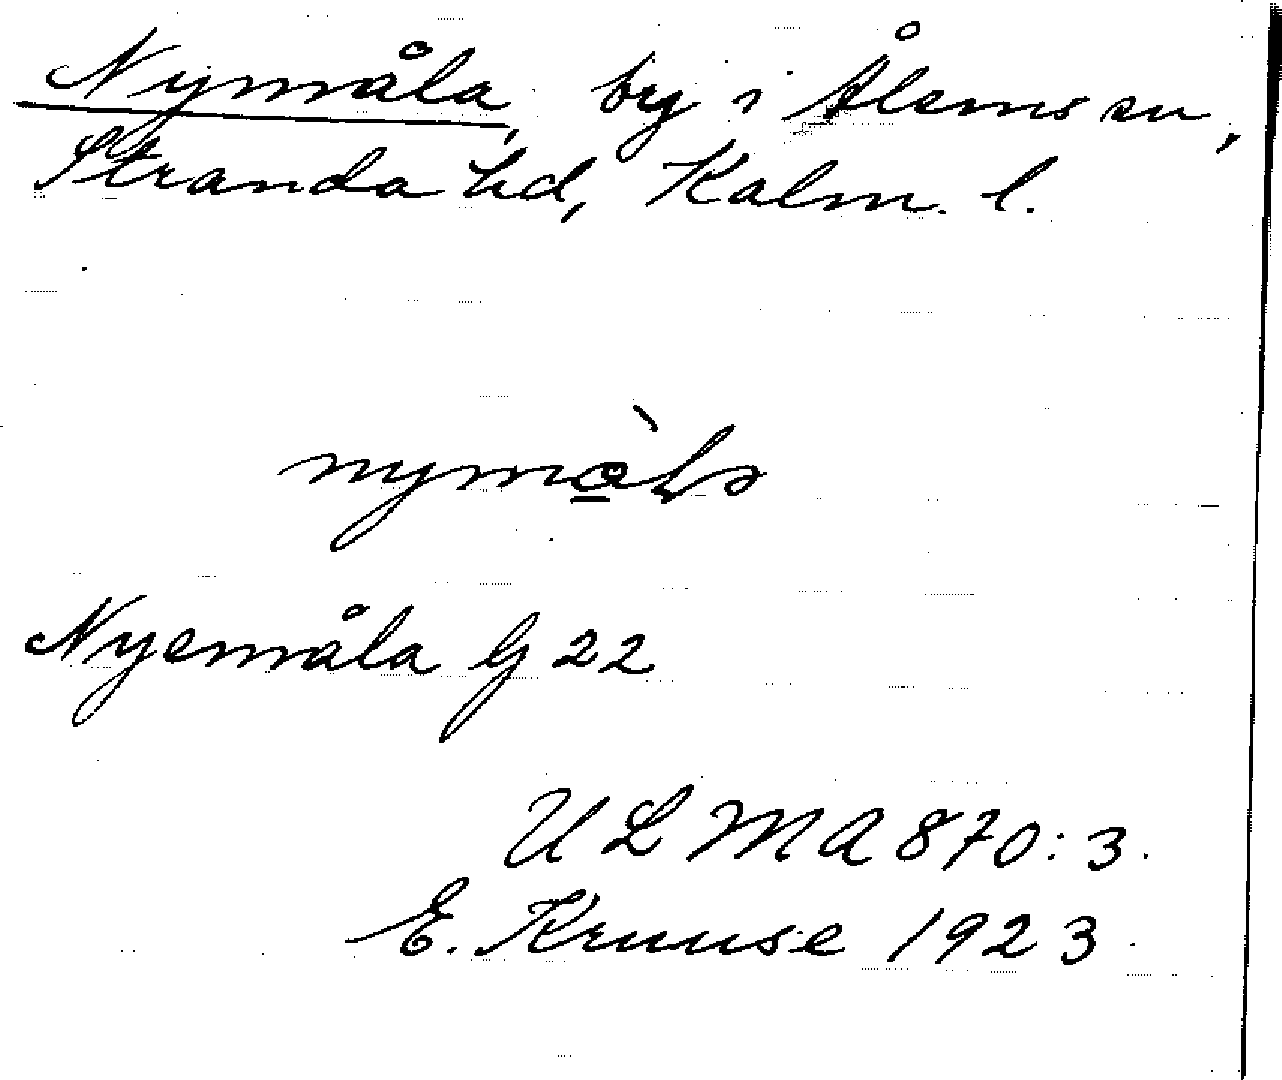 Nymåla, by i Ålems sn,
Stranda hd, Kalm. l.
Nyemåla G 22
ULMA 870:3.
E. Kruuse 1923